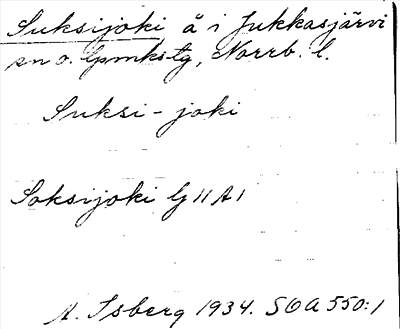 Suksijoki å i Jukkasjärvi
sn o. lpmks-tg, Norrb. l.
Suksi-joki
Soksijoki G 11 A 1
A. Isberg 1934. SOA 550:1